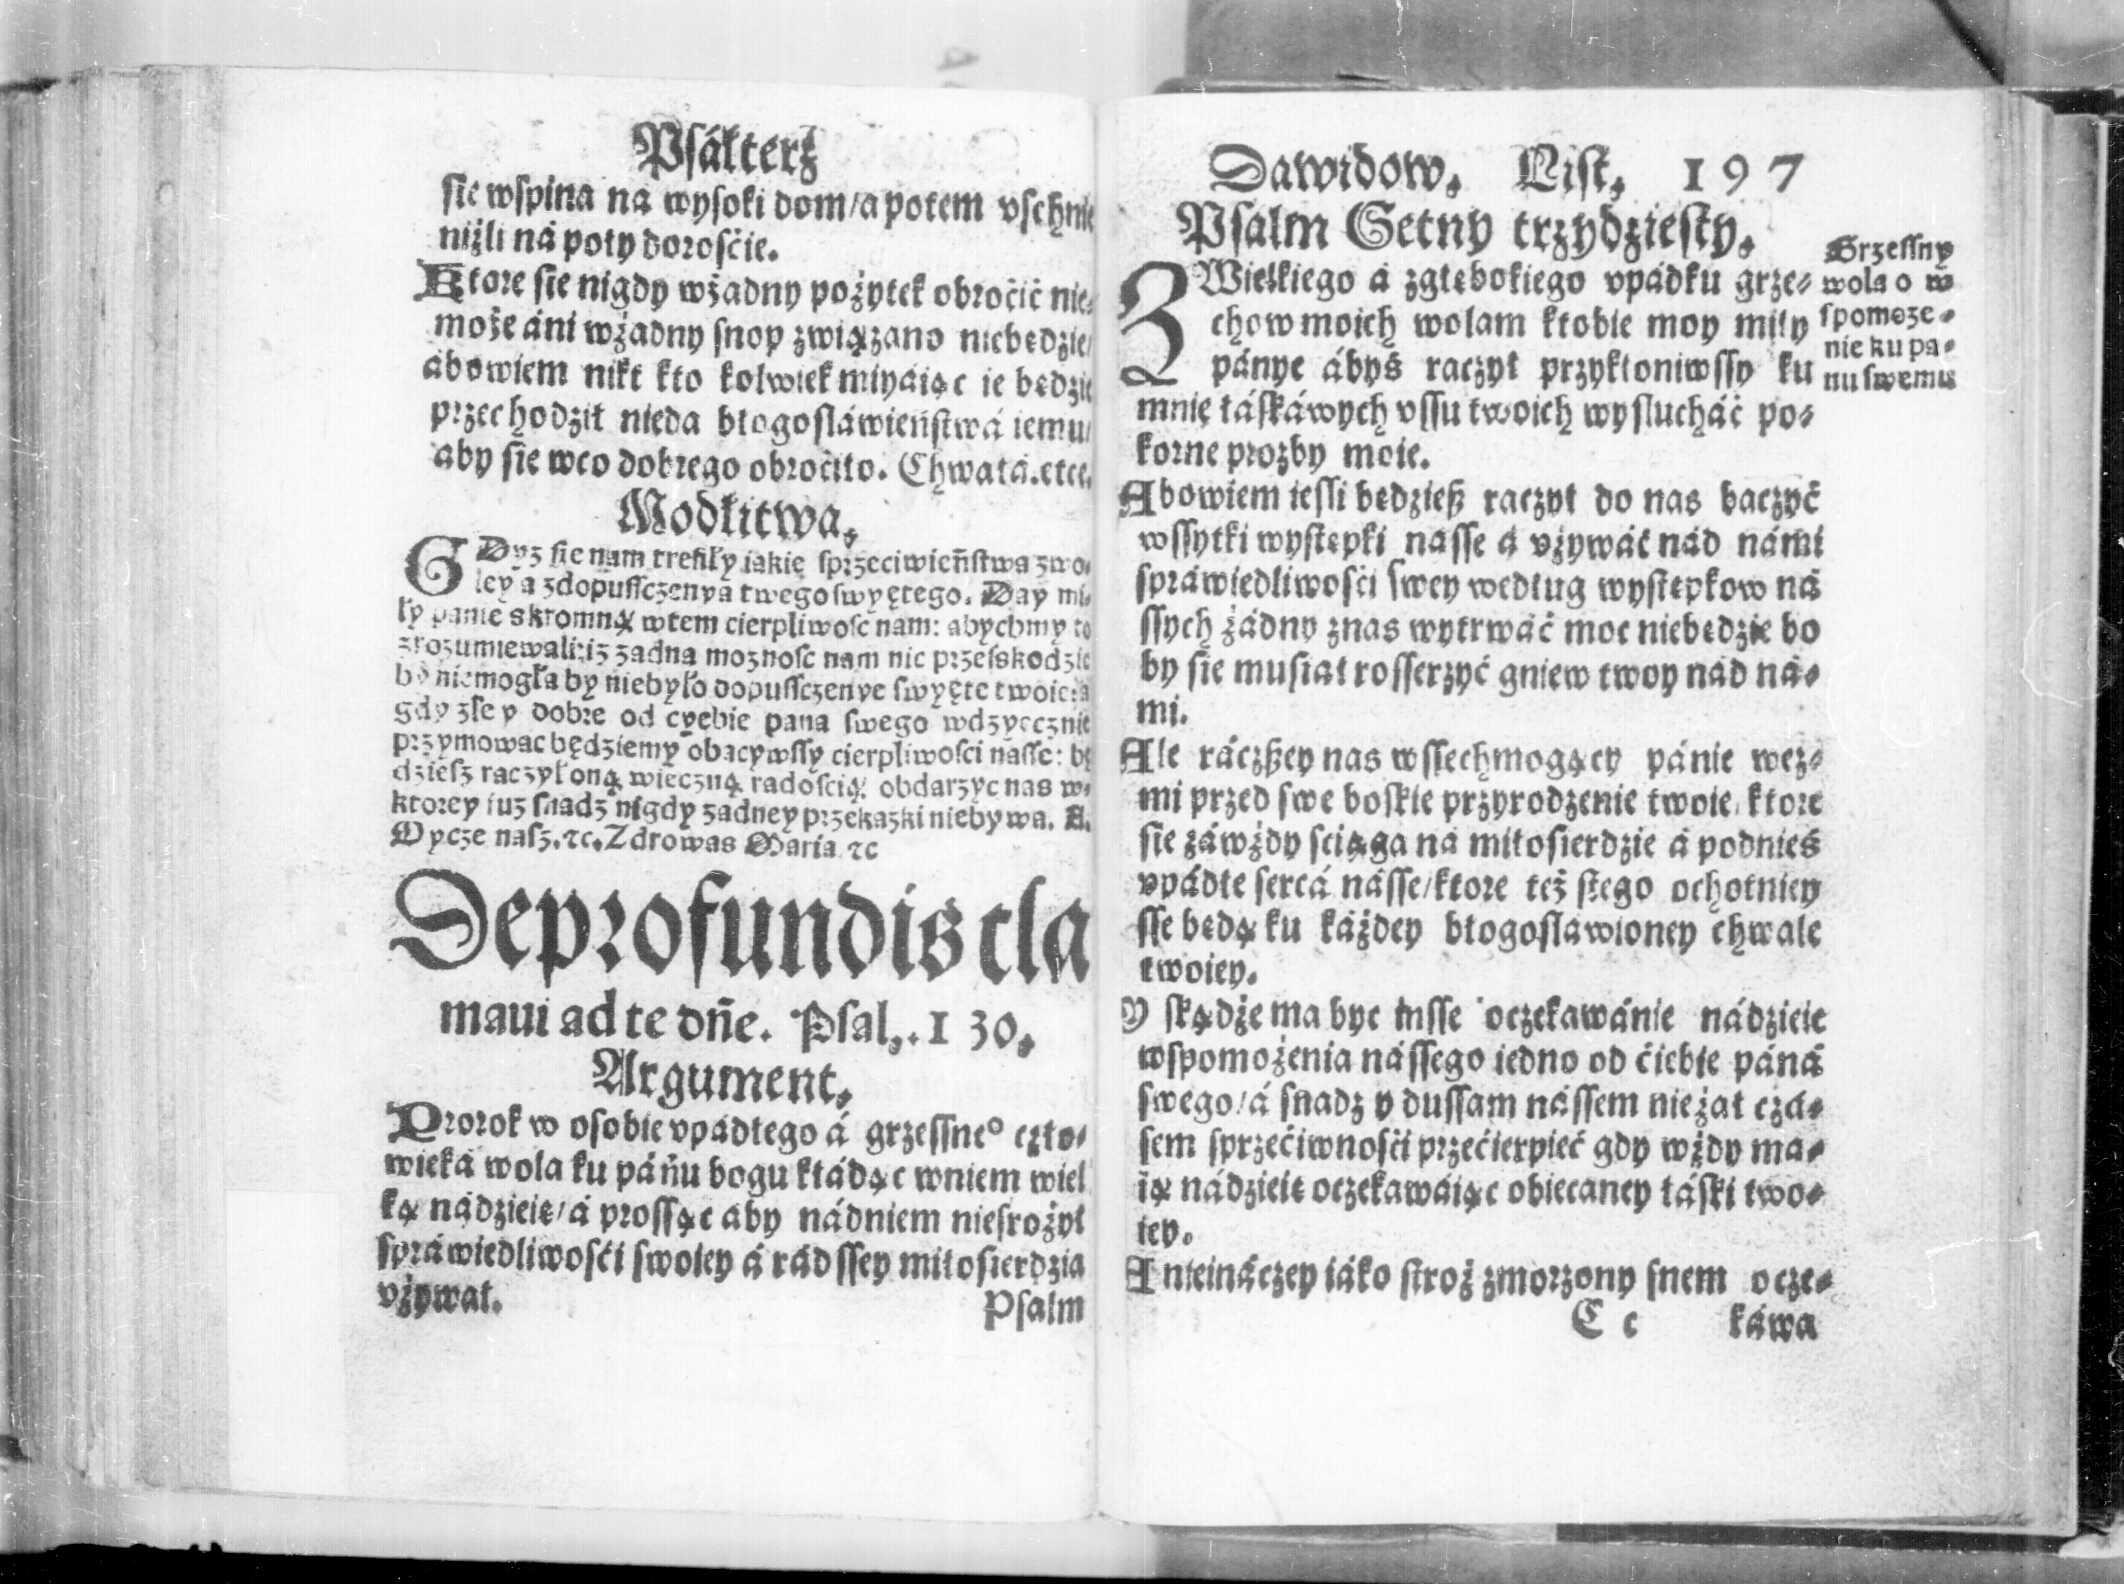 Psálterż
sie wspina na wysoki dom/a potem vschnie
niżli ná poły dorosćie.
Ktore sie nigdy wżadny pożytek obroćić nie-
może áni wżadny snop związano niebędzie/
abowiem nikt kto kolwiek miyáiąc ie będzie
przechodził nieda błogosláwieństwá iemu/
aby sie wco dobrego obroćiło. Chwałá. etce.
Modlitwa.
GDyz sie nam trefiły iakie sprzeciwieństwa zwo-
ley a zdopussczenya twego swyętego. Day mi-
ły panie skromną wtem cierpliwosc nam: abychmy to
zrozumiewali: iz zadna moznosc nam nic przeskodzic
by niemogła by niebyło dopussczenye swyęte twoie: a
gdy zle y dobre od cyebie pana swego wdzyęcznie
przymowac będziemy obacywssy cierpliwosci nasse: bę
dziesz raczył oną wieczną radoscią obdarzyc nas w-
ktorey iuz snadz nigdy zadney przekazki niebywa. A.
Oycze nasz. ⁊c. Zdrowas Maria ⁊c
De profundis cla
maui ad te dñe. Psal,. 130.
Argument.
Prorok w osobie vpádłego á grzessneº czło-
wieká wola ku pánu bogu kłádąc wniem wiel
ką nádzieię/á prossąc aby nádniem niesrożył
spráwiedliwosći swoiey á rádssey miłosierdzia
vżywał.
Psalm
Dawidow. List. 197
Psalm Setny trzydziesty.
ZWielkiego á zgłębokiego vpádku grze-
chow moich wolam ktobie moy miły
pánye ábyś raczył przykłoniwssy ku
mnię łáskáwych vssu twoich wysłucháć po-
korne prozby moie.
Grzessny
wola o w
spomoze-
nie ku pa-
nu swemu
Abowiem iesli będzieß raczył do nas baczyć
wssytki wystepki nasse á vżywáć nád námi
spráwiedliwosći swey według wystepkow ná
ssych żádny znas wytrwáć moc niebędzie bo
by sie musiał rosserzyć gniew twoy nád ná-
mi.
Ale ráczßey nas wssechmogący pánie wez-
mi przed swe boskie przyrodzenie twoie/ktore
sie záwżdy sciąga ná miłosierdzie á podnieś
vpádłe sercá násse/ktore też stego ochotniey
sse będą ku káżdey błogosławioney chwale
twoiey.
Y skądże ma byc insse oczekawánie nádzieie
wspomożenia nássego iedno od ćiebie páná
swego/á snadz y dussam nássem nieżal czá-
sem sprzećiwnosći przećierpieć gdy wżdy ma-
ią nádzieię oczekawáiąc obiecaney łáski two-
iey.
A nieináczey iáko stroż zmorzony snem ocze-
C c káwa